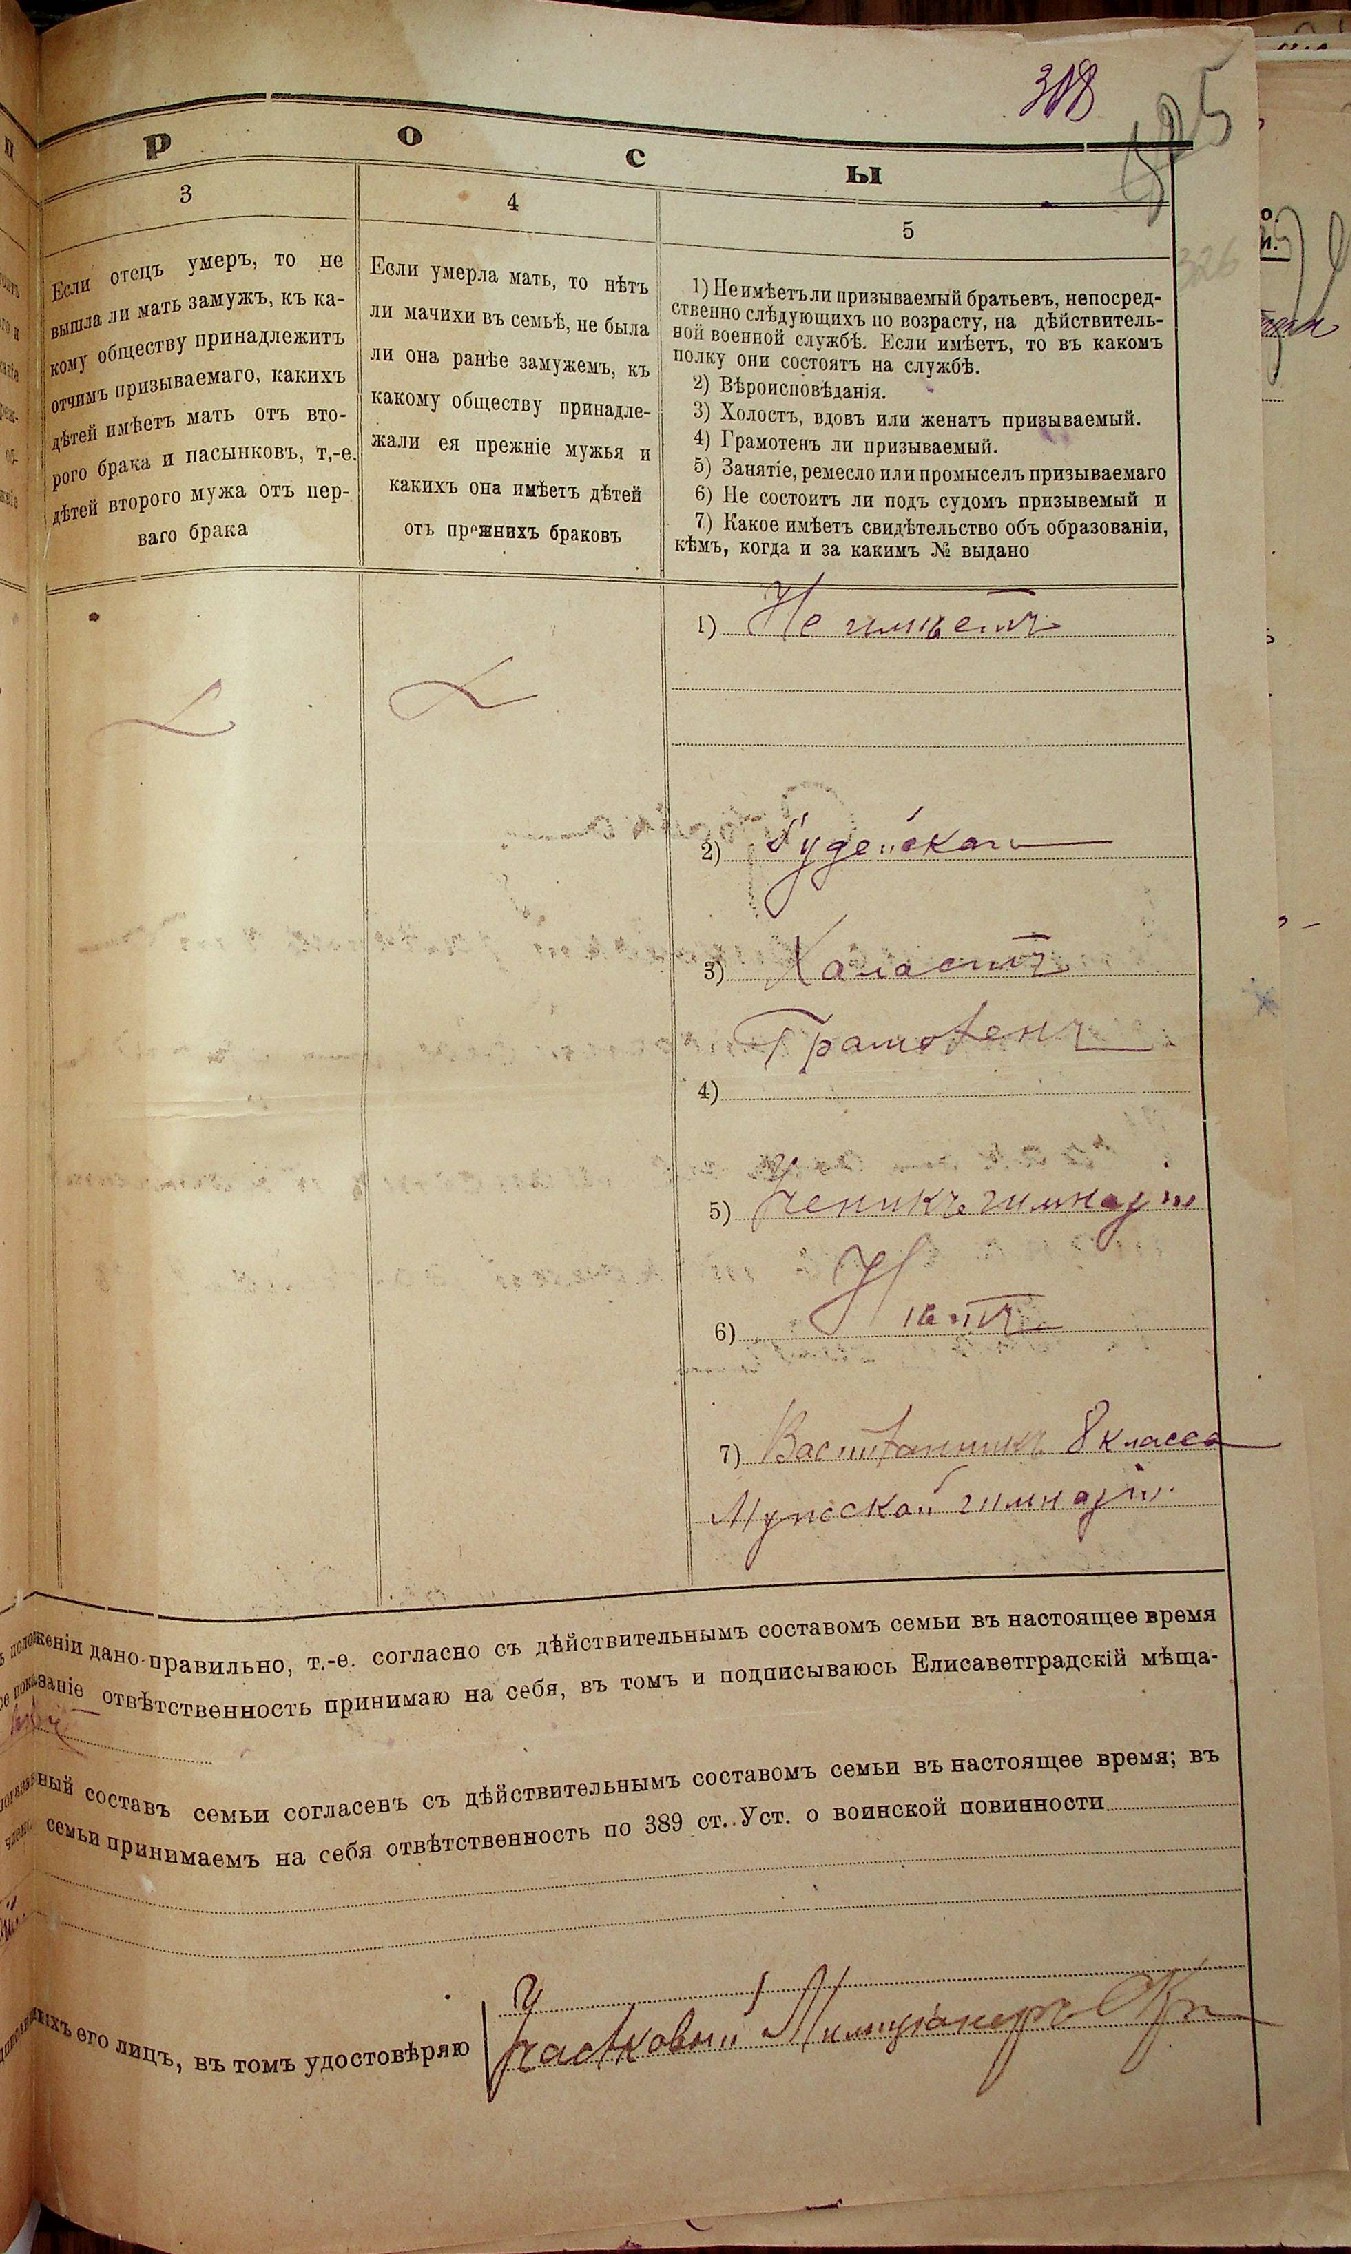 318
325
326
Р О С Ы
3
Если отецъ умеръ, то не
вышла ли мать замужъ, къ ка-
кому обществу принадлежитъ
отчимъ призываемаго, какихъ
дѣтей имѣетъ мать отъ вто-
рого брака и пасынковъ, т.-е.
дѣтей второго мужа отъ пер-
ваго брака
4
Если умерла мать, то нѣтъ
ли мачихи въ семьѣ, не была
ли она ранѣе замужемъ, къ
какому обществу принадле-
жали ея прежніе мужья и
какихъ она имѣетъ дѣтей
отъ прежнихъ браковъ
5
1) Не имѣетъ ли призываемый братьевъ, непосред-
ственно слѣдующихъ по возрасту, на дѣйствитель-
ной военной службѣ. Если имѣетъ, то въ какомъ
полку они состоятъ на службѣ.
2) Вѣроисповѣданія.
3) Холостъ, вдовъ или женатъ призываемый.
4) Грамотенъ ли призываемый.
5) Занятіе, ремесло или промыселъ призываемаго
6) Не состоитъ ли подъ судомъ призывемый и
7) Какое имѣетъ свидѣтельство объ образованіи,
кѣмъ, когда и за какимъ № выдано
1) Не имѣетъ
2) Іудейскаго
3) Халастъ
4) Грамотенъ
5) Ученикъ гимназіи
6) Нѣтъ
7) Васпитанникъ 8 класса
Мужской гимназіи.
положеніи дано правильно, т.-е. согласно съ дѣйствительнымъ составомъ семьи въ настоящее время
показаніе отвѣтственность принимаю на себя, въ томъ и подписываюсь Елисаветградскій мѣща-
ный составъ семьи согласенъ съ дѣйствительнымъ составомъ семьи въ настоящее время; въ
семьи принимаемъ на себя отвѣтственность по 389 ст. Уст. о воинской повинности
его лицъ, въ томъ удостовѣряю
Участковый Милиціонеръ